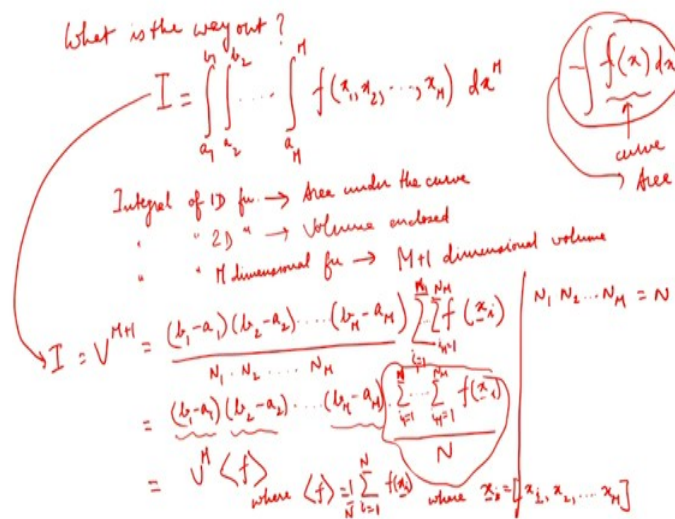 What is the way out ?
I = ∫_{a_1}^{b_1} ∫_{a_2}^{b_2} ..... ∫_{a_M}^{M} f(x_1, x_2, ..., x_M) dx^M
∫ f(x) dx
curve
Area
Integral of 1D fn. → Area under the curve
" " 2D " → Volume enclosed
" " M dimensional fn → M+1 dimensional volume
I = V^{M+1} = \frac{(b_1-a_1)(b_2-a_2) ..... (b_M-a_M)}{N_1 . N_2 ..... N_M} \sum_{i_1=1}^{N_1} \sum_{i_M=1}^{N_M} f(x_i)
N_1 N_2 ... N_M = N
= (b_1-a_1)(b_2-a_2) ..... (b_M-a_M) \frac{\sum_{i=1}^{N} ... \sum_{i_M=1}^{N_M} f(x_i)}{N}
= V^M ⟨f⟩
where ⟨f⟩ = \frac{1}{N} \sum_{i=1}^{N} f(x_i) where x_i = [x_1, x_2, ... x_M]